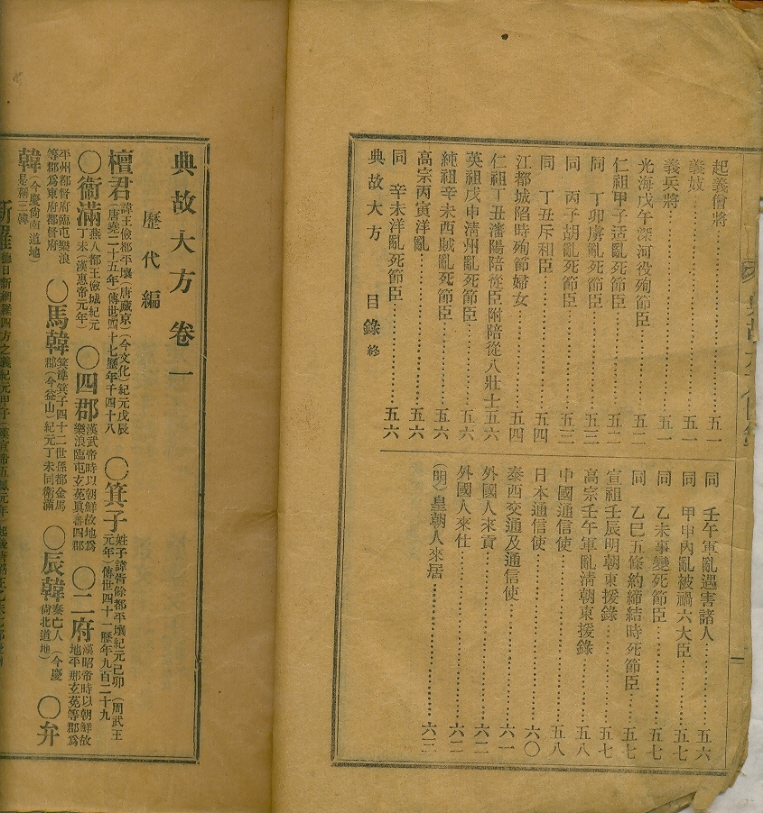 起義僧將 五一
義妓 五一
義兵將 五一
光海戊午深河役殉節臣 五二
仁祖甲子适亂死節臣 五二
同 丁卯虜亂死節臣 五三
同 丙子胡亂死節臣 五三
同 丁丑斥和臣 五四
江都城陷時殉節婦女 五四
仁祖丁丑瀋陽陪從臣附陪從八壯士 五六
英祖戊申清州亂死節臣 五六
純祖辛未西賊亂死節臣 五六
高宗丙寅洋亂 五六
同 辛未洋亂死節臣 五六
典故大方 目錄 終
同 壬午軍亂遇害諸人 五六
同 甲申內亂被禍六大臣 五七
同 乙未事變死節臣 五七
同 乙巳五條約締結時死節臣 五七
宣祖壬辰明朝東援錄 五七
高宗壬午軍亂清朝東援錄 五八
中國通信使 五八
日本通信使 六〇
泰西交通及通信使 六一
外國人來貢 六二
外國人來仕 六二
(明)皇朝人來居 六三
典故大方卷一
歷代編
檀君 諱王儉都平壤(唐藏京)(今文化)紀元戊辰(唐堯二十五年)傳世四十七歷年千四十八 〇箕子 姓子諱胥餘都平壤紀元己卯(周武王元年)傳世四十一歷年九百二十九
〇衞滿 燕人都王儉城紀元丁未(漢惠帝元年) 〇四郡 漢武帝時以朝鮮故地爲樂浪臨屯玄菟眞番四郡 〇二府 漢昭帝時以朝鮮故地平那玄菟等郡爲
平州都督府臨屯樂浪等郡爲東府都督府 〇馬韓 箕準箕子四十二世孫都金馬郡(今益山)紀元丁未同衛滿 〇辰韓 秦亡人(今慶尙北道地) 〇弁
韓 (今慶尙南道地)是爲三韓
新羅